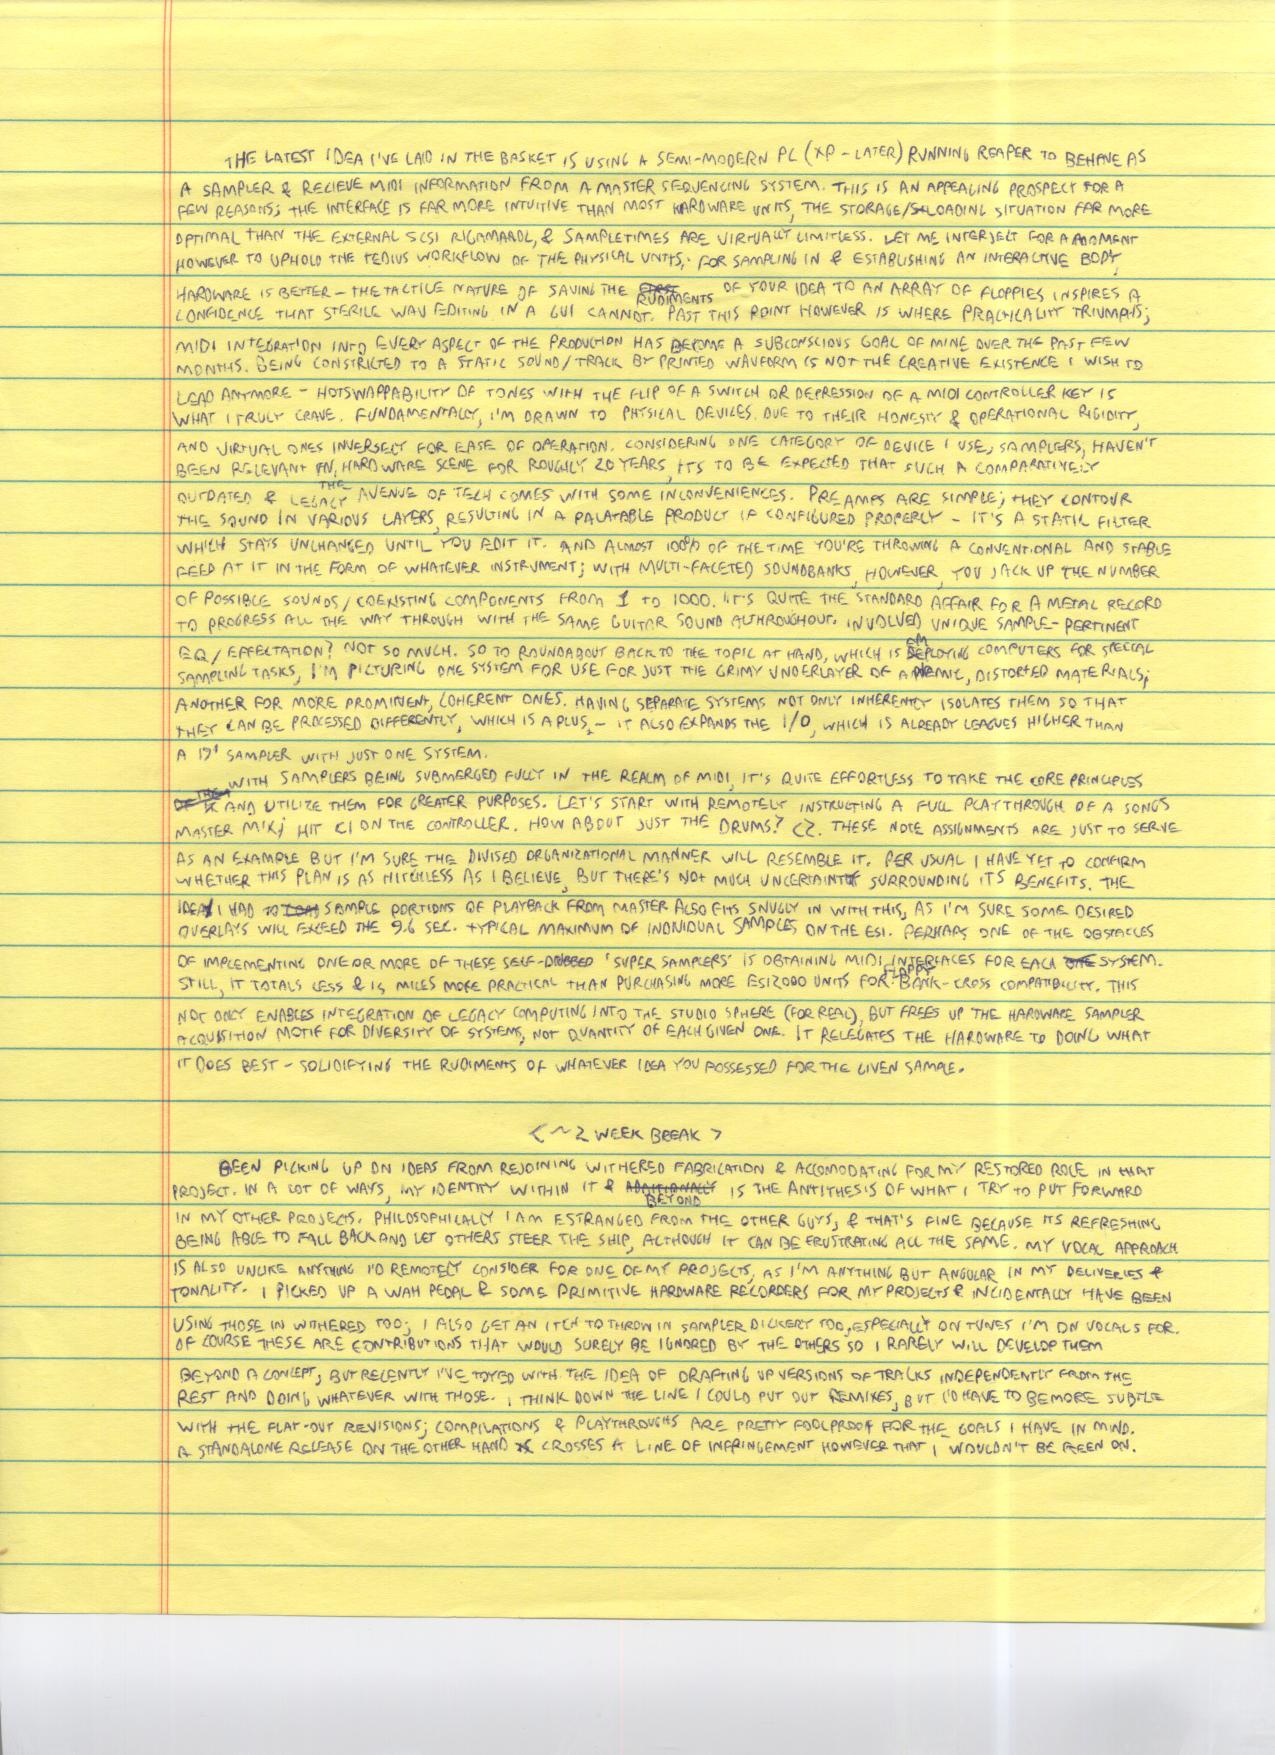 THE LATEST IDEA I'VE LAID IN THE BASKET IS USING A SEMI-MODERN PC (XP - LATER) RUNNING REAPER TO BEHAVE AS
A SAMPLER & RECIEVE MIDI INFORMATION FROM A MASTER SEQUENCING SYSTEM. THIS IS AN APPEALING PROSPECT FOR A
FEW REASONS; THE INTERFACE IS FAR MORE INTUITIVE THAN MOST HARDWARE UNITS, THE STORAGE/LOADING SITUATION FAR MORE
OPTIMAL THAN THE EXTERNAL SCSI RIGAMAROL, & SAMPLETIMES ARE VIRTUALLY LIMITLESS. LET ME INTERJECT FOR A MOMENT
HOWEVER TO UPHOLD THE TEDIUS WORKFLOW OF THE PHYSICAL UNITS; FOR SAMPLING IN & ESTABLISHING AN INTERACTIVE BODY,
HARDWARE IS BETTER - THE TACTILE NATURE OF SAVING THE RUDIMENTS OF YOUR IDEA TO AN ARRAY OF FLOPPIES INSPIRES A
CONFIDENCE THAT STERILE WAV EDITING IN A GUI CANNOT. PAST THIS POINT HOWEVER IS WHERE PRACTICALITY TRIUMPHS;
MIDI INTEGRATION INTO EVERY ASPECT OF THE PRODUCTION HAS BECOME A SUBCONSCIOUS GOAL OF MINE OVER THE PAST FEW
MONTHS. BEING CONSTRICTED TO A STATIC SOUND/TRACK BY PRINTED WAVFORM IS NOT THE CREATIVE EXISTENCE I WISH TO
LEAD ANYMORE - HOTSWAPPABILITY OF TONES WITH THE FLIP OF A SWITCH OR DEPRESSION OF A MIDI CONTROLLER KEY IS
WHAT I TRULY CRAVE. FUNDAMENTALLY, I'M DRAWN TO PHYSICAL DEVICES DUE TO THEIR HONESTY & OPERATIONAL RIGIDITY,
AND VIRTUAL ONES INVERSELY FOR EASE OF OPERATION. CONSIDERING ONE CATEGORY OF DEVICE I USE, SAMPLERS, HAVEN'T
BEEN RELEVANT IN THE HARDWARE SCENE FOR ROUGHLY 20 YEARS, ITS TO BE EXPECTED THAT SUCH A COMPARATIVELY
OUTDATED & LEGACY AVENUE OF TECH COMES WITH SOME INCONVENIENCES. PREAMPS ARE SIMPLE; THEY CONTOUR
THE SOUND IN VARIOUS LAYERS, RESULTING IN A PALATABLE PRODUCT IF CONFIGURED PROPERLY - IT'S A STATIC FILTER
WHICH STAYS UNCHANGED UNTIL YOU EDIT IT. AND ALMOST 100% OF THE TIME YOU'RE THROWING A CONVENTIONAL AND STABLE
FEED AT IT IN THE FORM OF WHATEVER INSTRUMENT; WITH MULTI-FACETED SOUNDBANKS, HOWEVER, YOU JACK UP THE NUMBER
OF POSSIBLE SOUNDS/COEXISTING COMPONENTS FROM 1 TO 1000. IT'S QUITE THE STANDARD AFFAIR FOR A METAL RECORD
TO PROGRESS ALL THE WAY THROUGH WITH THE SAME GUITAR SOUND ALTHROUGHOUT. INVOLVED UNIQUE SAMPLE-PERTINENT
EQ/EFFECTATION? NOT SO MUCH. SO TO ROUNDABOUT BACK TO THE TOPIC AT HAND, WHICH IS EMPLOYING COMPUTERS FOR SPECIAL
SAMPLING TASKS, I'M PICTURING ONE SYSTEM FOR USE FOR JUST THE GRIMY UNDERLAYER OF ANEMIC, DISTORTED MATERIALS;
ANOTHER FOR MORE PROMINENT, COHERENT ONES. HAVING SEPARATE SYSTEMS NOT ONLY INHERENTLY ISOLATES THEM SO THAT
THEY CAN BE PROCESSED DIFFERENTLY, WHICH IS A PLUS, - IT ALSO EXPANDS THE I/O, WHICH IS ALREADY LEAGUES HIGHER THAN
A 19" SAMPLER WITH JUST ONE SYSTEM.
WITH SAMPLERS BEING SUBMERGED FULLY IN THE REALM OF MIDI, IT'S QUITE EFFORTLESS TO TAKE THE CORE PRINCIPLES
AND UTILIZE THEM FOR GREATER PURPOSES. LET'S START WITH REMOTELY INSTRUCTING A FULL PLAYTHROUGH OF A SONGS
MASTER MIX; HIT C1 ON THE CONTROLLER. HOW ABOUT JUST THE DRUMS? C2. THESE NOTE ASSIGNMENTS ARE JUST TO SERVE
AS AN EXAMPLE BUT I'M SURE THE DIVISED ORGANIZATIONAL MANNER WILL RESEMBLE IT. PER USUAL I HAVE YET TO CONFIRM
WHETHER THIS PLAN IS AS HITCHLESS AS I BELIEVE, BUT THERE'S NOT MUCH UNCERTAINTY SURROUNDING ITS BENEFITS. THE
IDEA I HAD TO SAMPLE PORTIONS OF PLAYBACK FROM MASTER ALSO FITS SNUGLY IN WITH THIS, AS I'M SURE SOME DESIRED
OVERLAYS WILL EXCEED THE 9.6 SEC. TYPICAL MAXIMUM OF INDIVIDUAL SAMPLES ON THE ESI. PERHAPS ONE OF THE OBSTACLES
OF IMPLEMENTING ONE OR MORE OF THESE SELF-DUBBED 'SUPER SAMPLERS' IS OBTAINING MIDI INTERFACES FOR EACH SYSTEM.
STILL, IT TOTALS LESS & IS MILES MORE PRACTICAL THAN PURCHASING MORE ESI2000 UNITS FOR FLOPPY BANK-CROSS COMPATIBILITY. THIS
NOT ONLY ENABLES INTEGRATION OF LEGACY COMPUTING INTO THE STUDIO SPHERE (FOR REAL), BUT FREES UP THE HARDWARE SAMPLER
ACQUISITION MOTIF FOR DIVERSITY OF SYSTEMS, NOT QUANTITY OF EACH GIVEN ONE. IT RELEGATES THE HARDWARE TO DOING WHAT
IT DOES BEST - SOLIDIFYING THE RUDIMENTS OF WHATEVER IDEA YOU POSSESSED FOR THE GIVEN SAMPLE.
< ~ 2 WEEK BREAK >
BEEN PICKING UP ON IDEAS FROM REJOINING WITHERED FABRICATION & ACCOMODATING FOR MY RESTORED ROLE IN THAT
PROJECT. IN A LOT OF WAYS, MY IDENTITY WITHIN IT & BEYOND IS THE ANTITHESIS OF WHAT I TRY TO PUT FORWARD
IN MY OTHER PROJECTS. PHILOSOPHICALLY I AM ESTRANGED FROM THE OTHER GUYS, & THAT'S FINE BECAUSE ITS REFRESHING
BEING ABLE TO FALL BACK AND LET OTHERS STEER THE SHIP, ALTHOUGH IT CAN BE FRUSTRATING ALL THE SAME. MY VOCAL APPROACH
IS ALSO UNLIKE ANYTHING I'D REMOTELY CONSIDER FOR ONE OF MY PROJECTS, AS I'M ANYTHING BUT ANGULAR IN MY DELIVERIES &
TONALITY. I PICKED UP A WAH PEDAL & SOME PRIMITIVE HARDWARE RECORDERS FOR MY PROJECTS & INCIDENTALLY HAVE BEEN
USING THOSE IN WITHERED TOO; I ALSO GET AN ITCH TO THROW IN SAMPLER DICKERY TOO, ESPECIALLY ON TUNES I'M ON VOCALS FOR.
OF COURSE THESE ARE CONTRIBUTIONS THAT WOULD SURELY BE IGNORED BY THE OTHERS SO I RARELY WILL DEVELOP THEM
BEYOND A CONCEPT, BUT RECENTLY I'VE TOYED WITH THE IDEA OF DRAFTING UP VERSIONS OF TRACKS INDEPENDENTLY FROM THE
REST AND DOING WHATEVER WITH THOSE. I THINK DOWN THE LINE I COULD PUT OUT REMIXES, BUT I'D HAVE TO BE MORE SUBTLE
WITH THE FLAT-OUT REVISIONS; COMPILATIONS & PLAYTHROUGHS ARE PRETTY FOOLPROOF FOR THE GOALS I HAVE IN MIND.
A STANDALONE RELEASE ON THE OTHER HAND CROSSES A LINE OF INFRINGEMENT HOWEVER THAT I WOULDN'T BE KEEN ON.